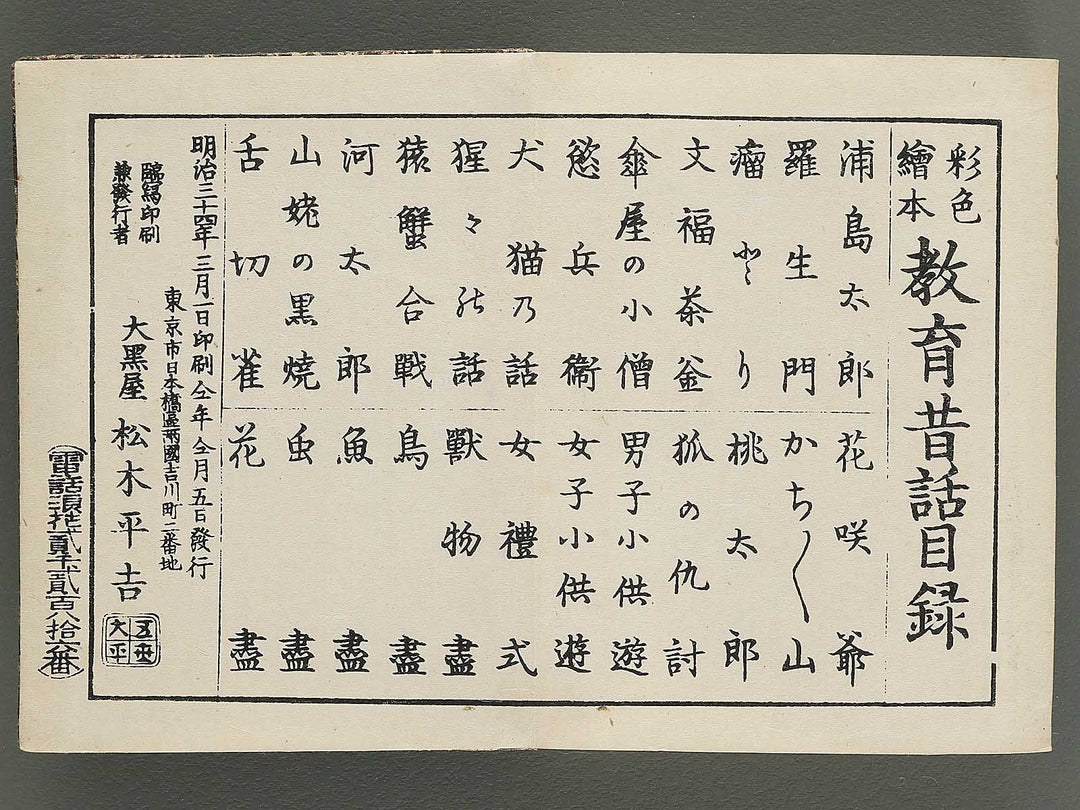 彩色
繪本
教育昔話目録
浦島太郎
羅生門
瘤とり
文福茶釜
傘屋の小僧
慾兵衞
犬猫乃話
猩々能話
猿蟹合戰
河太郎
山姥の黒焼
舌切雀
花咲爺
かち〳〵山
桃太郎
狐の仇討
男子小供遊
女子小供遊
女禮式
獸物盡
鳥盡
魚盡
虫盡
花盡
明治三十四年三月一日印刷仝年仝月五日發行
東京市日本橋區兩國吉川町二番地
臨寫印刷
兼發行者
大黒屋 松木平吉
(電話浪花貳千貳百八拾六番)